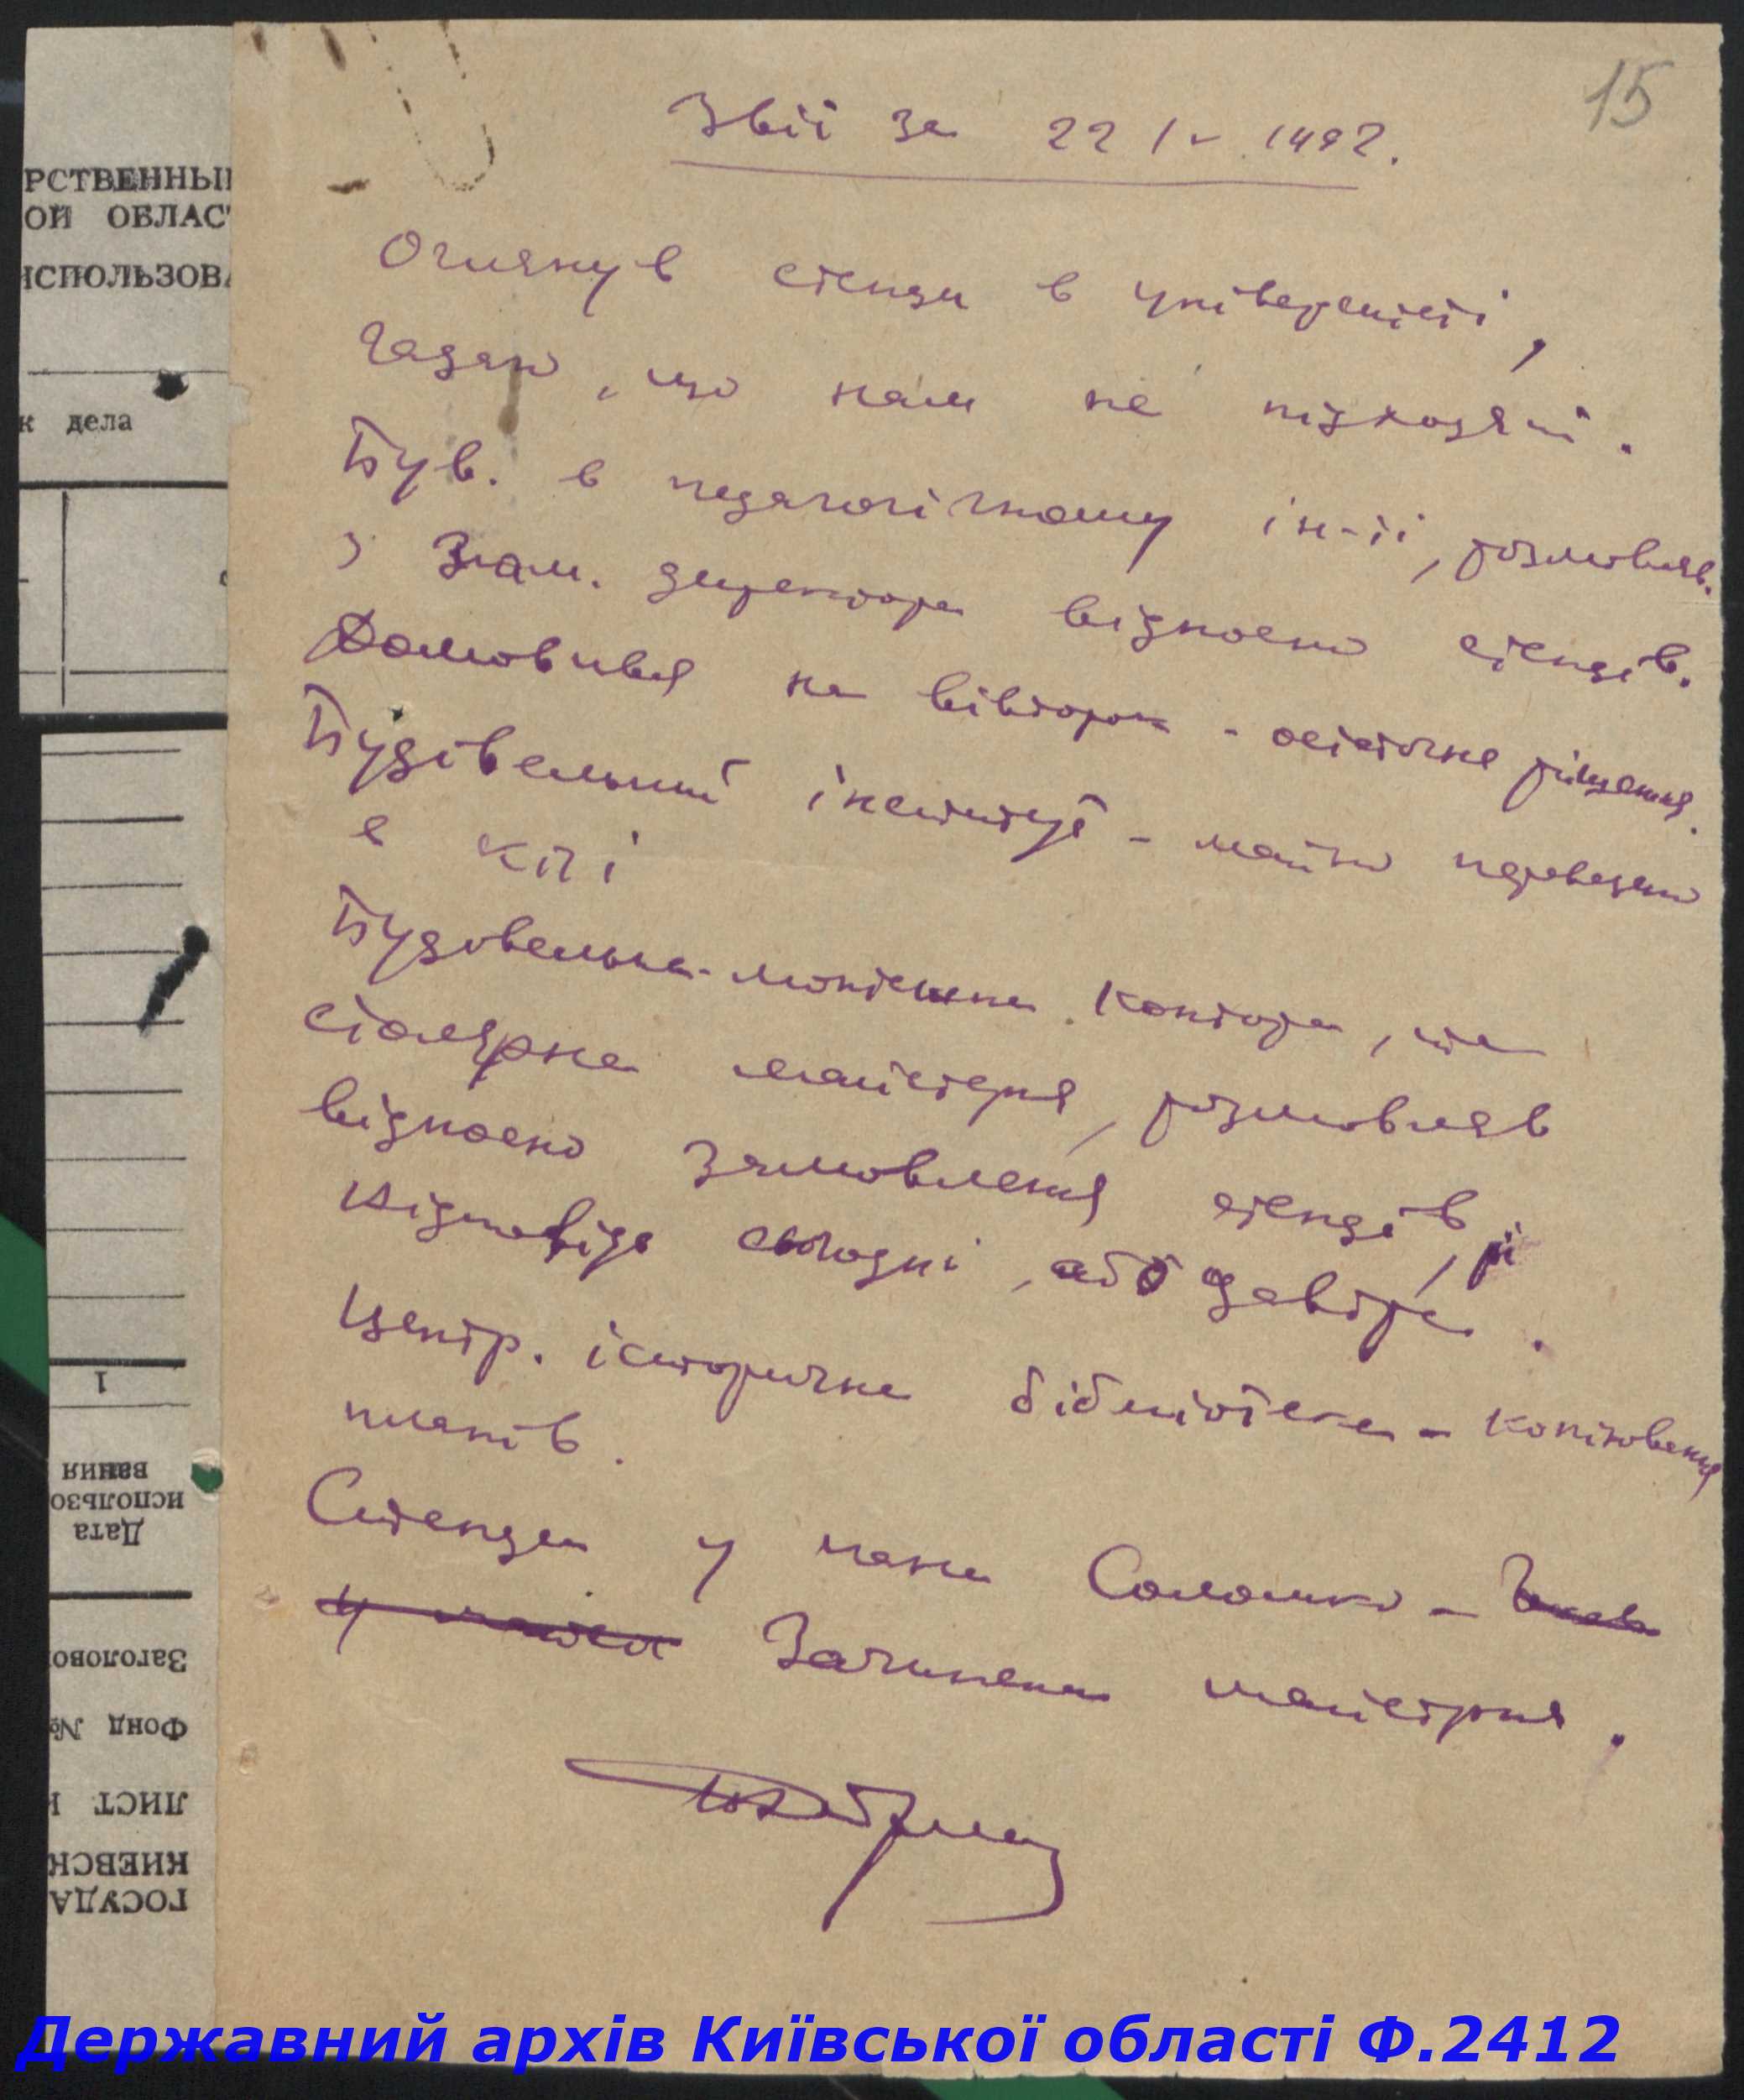 15
Звіт за 22 IV 1942.
Оглянув стенди в університеті,
гадаю, що нам не підходять.
Був. в педагогічному ін-ті, розмовляв.
з Зам. директора відносно стендів.
Домовився на вівторок - остаточне рішення.
Будівельний інститут - майно переведено
в КПІ
Будовельна-монтажна контора, та
столярна майстерня, розмовляв
відносно замовлення стендів,
відповідь сьогодні, або завтра.
Центр. історична бібліотека - копіювання
планів.
Стенди у пана Соломко -
Зачинена майстрня.
РСТВЕННЫЙ
ОЙ ОБЛАС
ИСПОЛЬЗОВА
к дела
1
вания
использо
Дата
Заголово
Фонд №
ЛИСТ
КИЕВСК
ГОСУДА
Державний архів Київської області Ф.2412